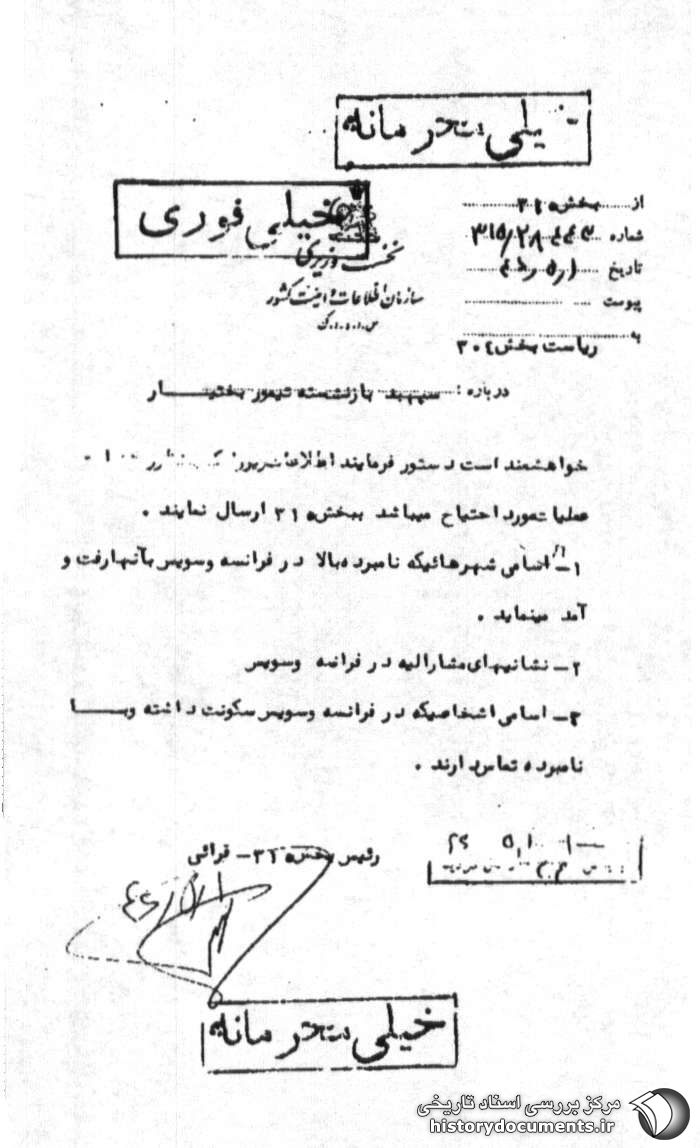 خیلی محرمانه
خیلی فوری
نخست وزیری
سازمان اطلاعات و امنیت کشور
س.ا.و.ا.ک
از بخش
شماره
تاریخ
پیوست
به ریاست بخش ۳۰۴
درباره : سپهبد بازنشسته تیمور بختیـــار
خواهشمند است دستور فرمایند اطلاعات
عملیات مورد احتیاج میباشد ببخش ۳۱۵ ارسال نمایند .
۱- اسامی شهرهائیکه نامبرده بالا در فرانسه وسویس بآنهارفت و
آمد مینماید .
۲- نشانیهای مشارالیه در فرانسه وسویس
۳- اسامی اشخاصیکه در فرانسه وسویس سکونت داشته وبـــا
نامبرده تماس دارند .
رئیس بخش ۳۱۵ - فرائی
خیلی محرمانه
مرکز بررسی اسناد تاریخی
historydocuments.ir